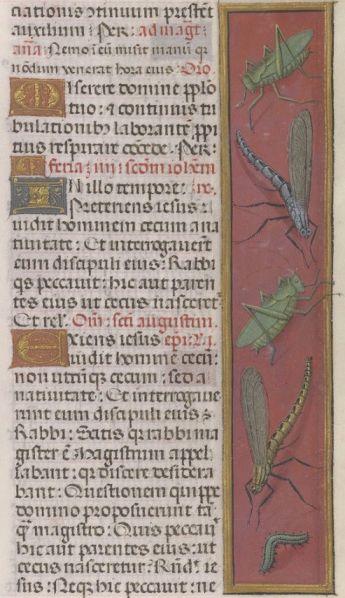 ciationis ↄtinuum prestēt
auxilium : Per : ad mag̅t
an̅a : Nemo ī eū misit manū q̅
nōdum venerat hora eius : Oro
Miserere domine pp̅lo
tuo : ⁊ continuis tri
bulationib⁹ laborantē p̅pi
tius respirare cōcede : Per :
feria iiij : scd̅m ioh̅em
In illo tempore :
Preteriens iesus :
uidit hominem cecum a na
tiuitate : Et interrogauert̅
eum discipuli eius : Rabbi
q̅s peccauit : hic aut paren
tes eius ut cecus nasceret̅
Et rel̅ : Om̅ : sc̅ti augustini
Exiens iesus ep̅i :
uidit hominē cecū :
non utrūq̅ cecum : sed a
natiuitate : Et interrogaue
runt eum discipuli eius :
Rabbi : Satis q̅ rabbi ma
gister ē : Magistrum appel
labant : q̅ discere desidera
bant : Questionem quippe
domino proposuerunt tā
q̅ magistro : Quis peccauit
hic aut parentes eius : ut
cecus nasceretur : Rn̅d : ie
sus : Neq̅ hic peccauit : ne